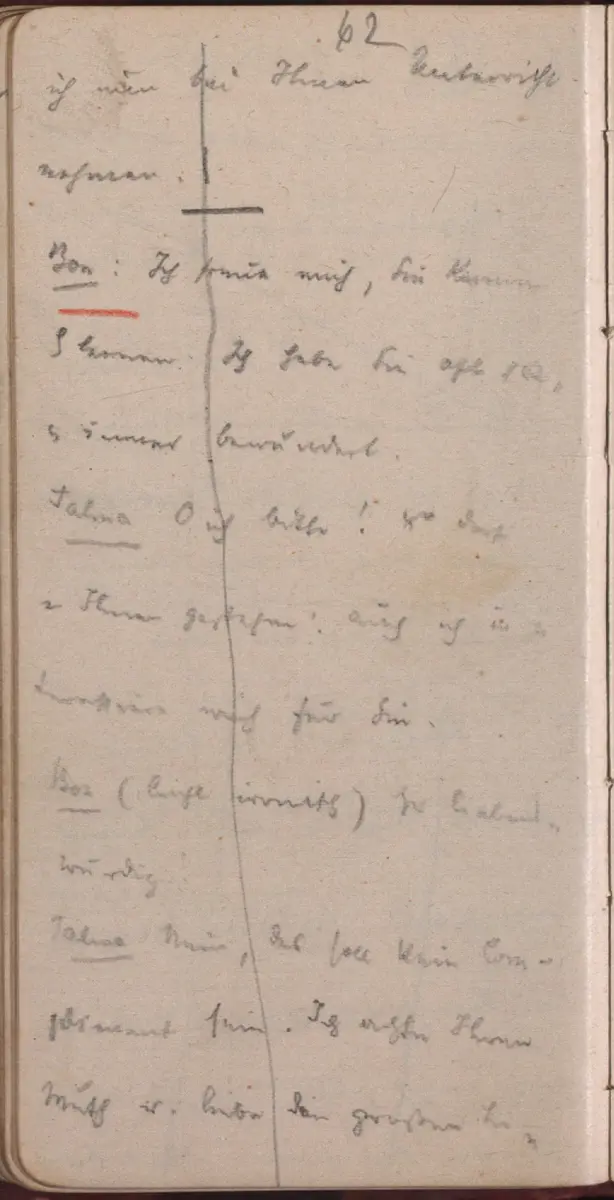 62
ich nun bei Ihnen Unterricht
nehmen.
Bon: Ich freue mich, Sie kennen
z lernen. Ich habe Sie oft
u immer bewundert.
Talma O ich bitte! darf
Ihnen gestehen: auch ich in
teressiere mich für Sie.
Bon (leicht ironisch) Sehr liebens-
würdig!
Talma Nein, das soll kein Com-
pliment sein. Ich achte Ihren
Muth u. liebe den grossen